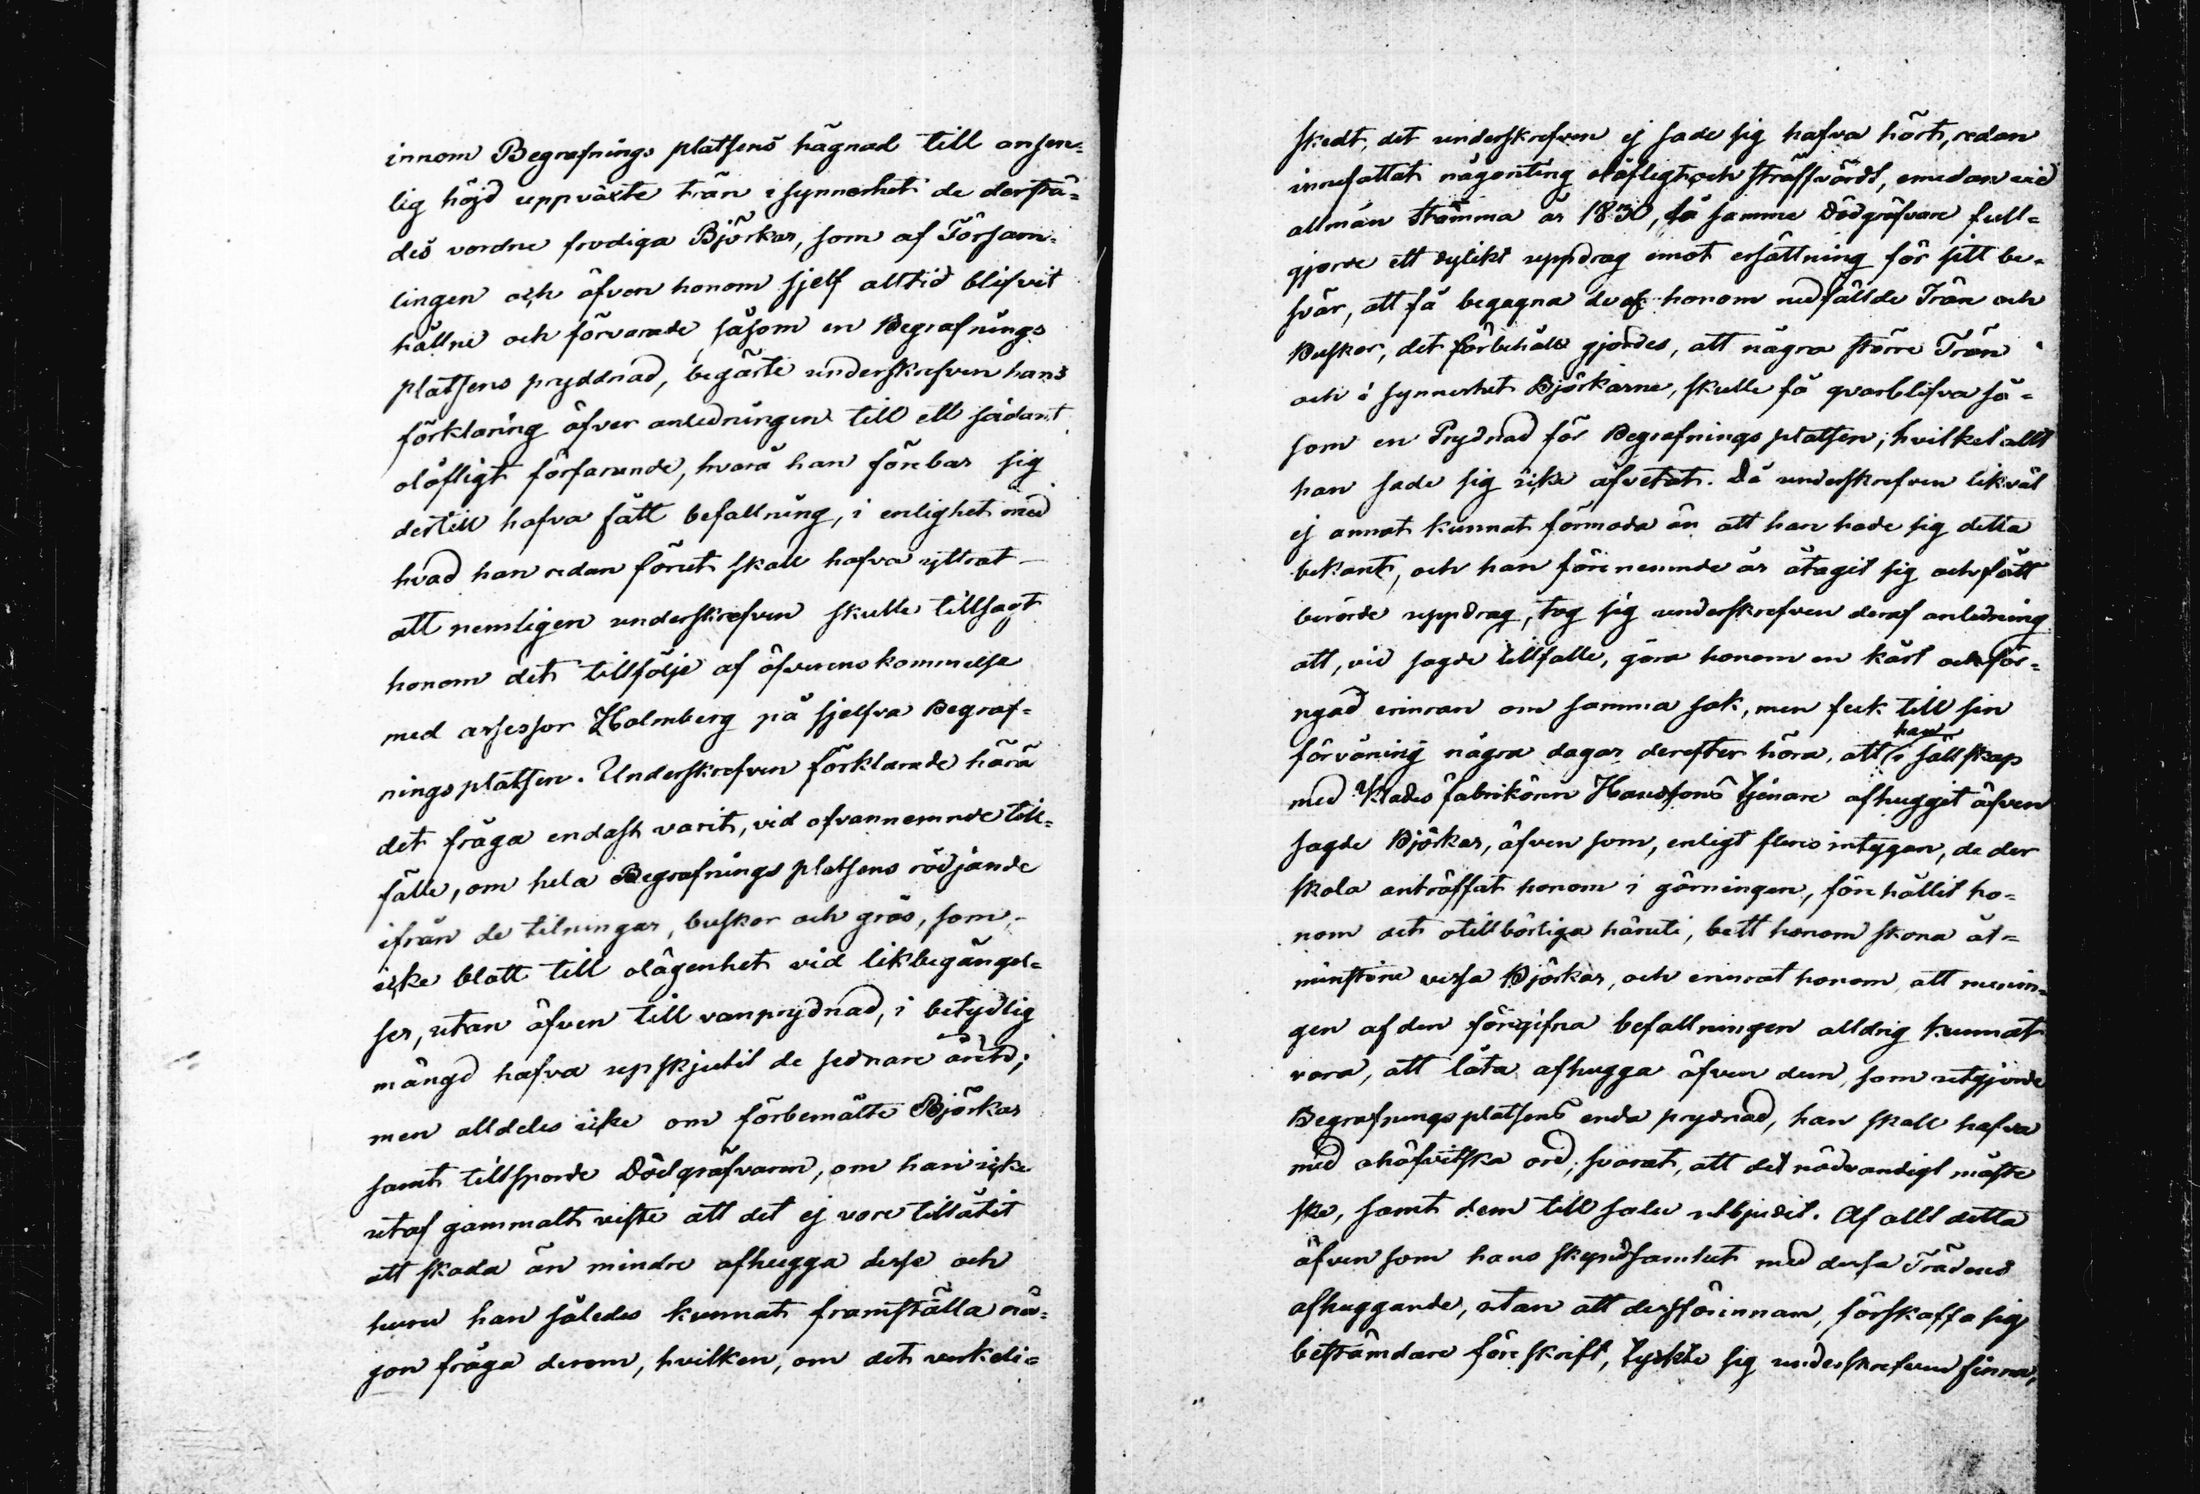 innom Begrafnings platsens hägnad till ansen-
lig höjd uppväxte trän isynnerhet de derstä-
des vordne frodiga Björkar, som af Försam-
lingen och äfven honom sjelf alltid blifvit
hållne och förvarade såsom en Begrafnings
platsens pryddnad, begärte underskrefven hans
förklaring öfver anledningen till ett sådant
olofligt förfarande, hvarå han förebar sig
dertill hafva fått befallning, i enlighet med
hvad han redan förut skall hafva yttrat –
att nemligen underskrefven skulle tillsagt
honom det tillfölje af öfverenskommelse
med assessor Holmberg på sjelfva Begraf-
ningsplatsen. Underskrefven förklarade härå
det fråga endast varit, vid ofvannemnde till-
fälle, om hela Begrafnings platsens rödjande
ifrån de telningar, buskor och gräs, som,
icke blott till olägenhet vid likbegängel-
ser, utan äfven till vanprydnad, i betydlig
mängd hafva upskjutit de sednare åren;
men alldeles icke om förbemälte Björkar
samt tillsporde Dödgräfvaren, om han icke
utaf gammalt viste att det ej vore tillåtit
att skada än mindre afhugga desse och
huru han således kunnat framställa nå-
gon fråga derom, hvilken, om det verkeli-
skedt, det underskrefven ej sade sig hafva hört, redan
innefattat någonting olofligt och straffvärdt, emedan vid
allmän stämma år 1830, då samme Dödgräfvare full-
gjorde ett dylikt uppdrag emot ersättning för sitt be-
svär, att få begagna de af honom nedfällde Trän och
Buskor, det förbehåll gjordes, att några större Trän
och i synnerhet Björkarne, skulle få qvarblifva så-
som en Prydnad för Begrafnings platsen; hvilket allt
han sade sig icke afvetat. Då underskrefven likväl
ej annat kunnat förmoda än att han hade sig detta
bekant, och han förenemnde år åtagit sig och fått
berörde uppdrag, tog sig underskrefven deraf anledning
att, vid sagde tillfälle, göra honom en kort och för-
nyad erinran om samma sak, men feck till sin
förvåning några dagar derefter höra, att han i sällskap
med Klädesfabrikören Hanssons tjenare afhuggit äfven
sagde Björkar, äfven som, enligt fleres intygan, de der
skola anträffat honom i görningen, före hållit ho-
nom det otillbörliga häruti, bett honom skona åt-
minstone vissa Björkar, och erinrat honom att menin-
gen af den föregifna befallningen alldrig kunnat
vara, att låta afhugga äfven dem, som utgjorde
Begrafningsplatsens enda prydnad, han skall hafva
med ohöfvitska ord, svarat, att det nödvändigt måste
ske, samt dem till salu utbjudit. Af allt detta
äfven som hans skyndsamhet med dessa Trädens
afhuggande, utan att dessförinnan, förskaffa sig
bestämdare föreskrift, tyckte sig underskrefven finna,